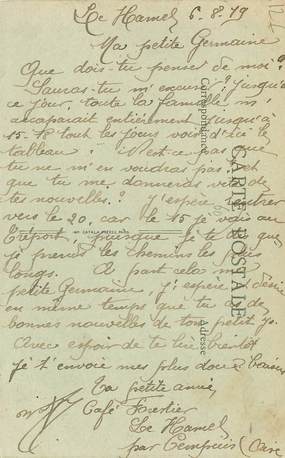 Le Hamel 6.8.19
Ma petite Germaine
Que dois-tu penser de moi?
Sauras-tu m'excuser? jusqu'à
ce jour, toute la famille m'
accaparait entièrement jusqu'à
15-18 tout les jours vois d'ici le
tableau! N'est-ce pas que
tu ne m'en voudras pas, et
que tu me donneras vite de
tes nouvelles? J'espère rentrer
vers le 20, car le 15 je vais au
Tréport, puisque je te dis que
je prends les chemins les plus
longs. A part cela ma
petite Germaine, j'espère et désire
en même temps que tu aies de
bonnes nouvelles de ton petit
Avec espoir de te lire bientôt
je t'envoie mes plus doux baisers
Ta petite amie,
Café Forestier
Le Hamel
par Cempuis (Oise
CARTE POSTALE
Correspondance
Adresse